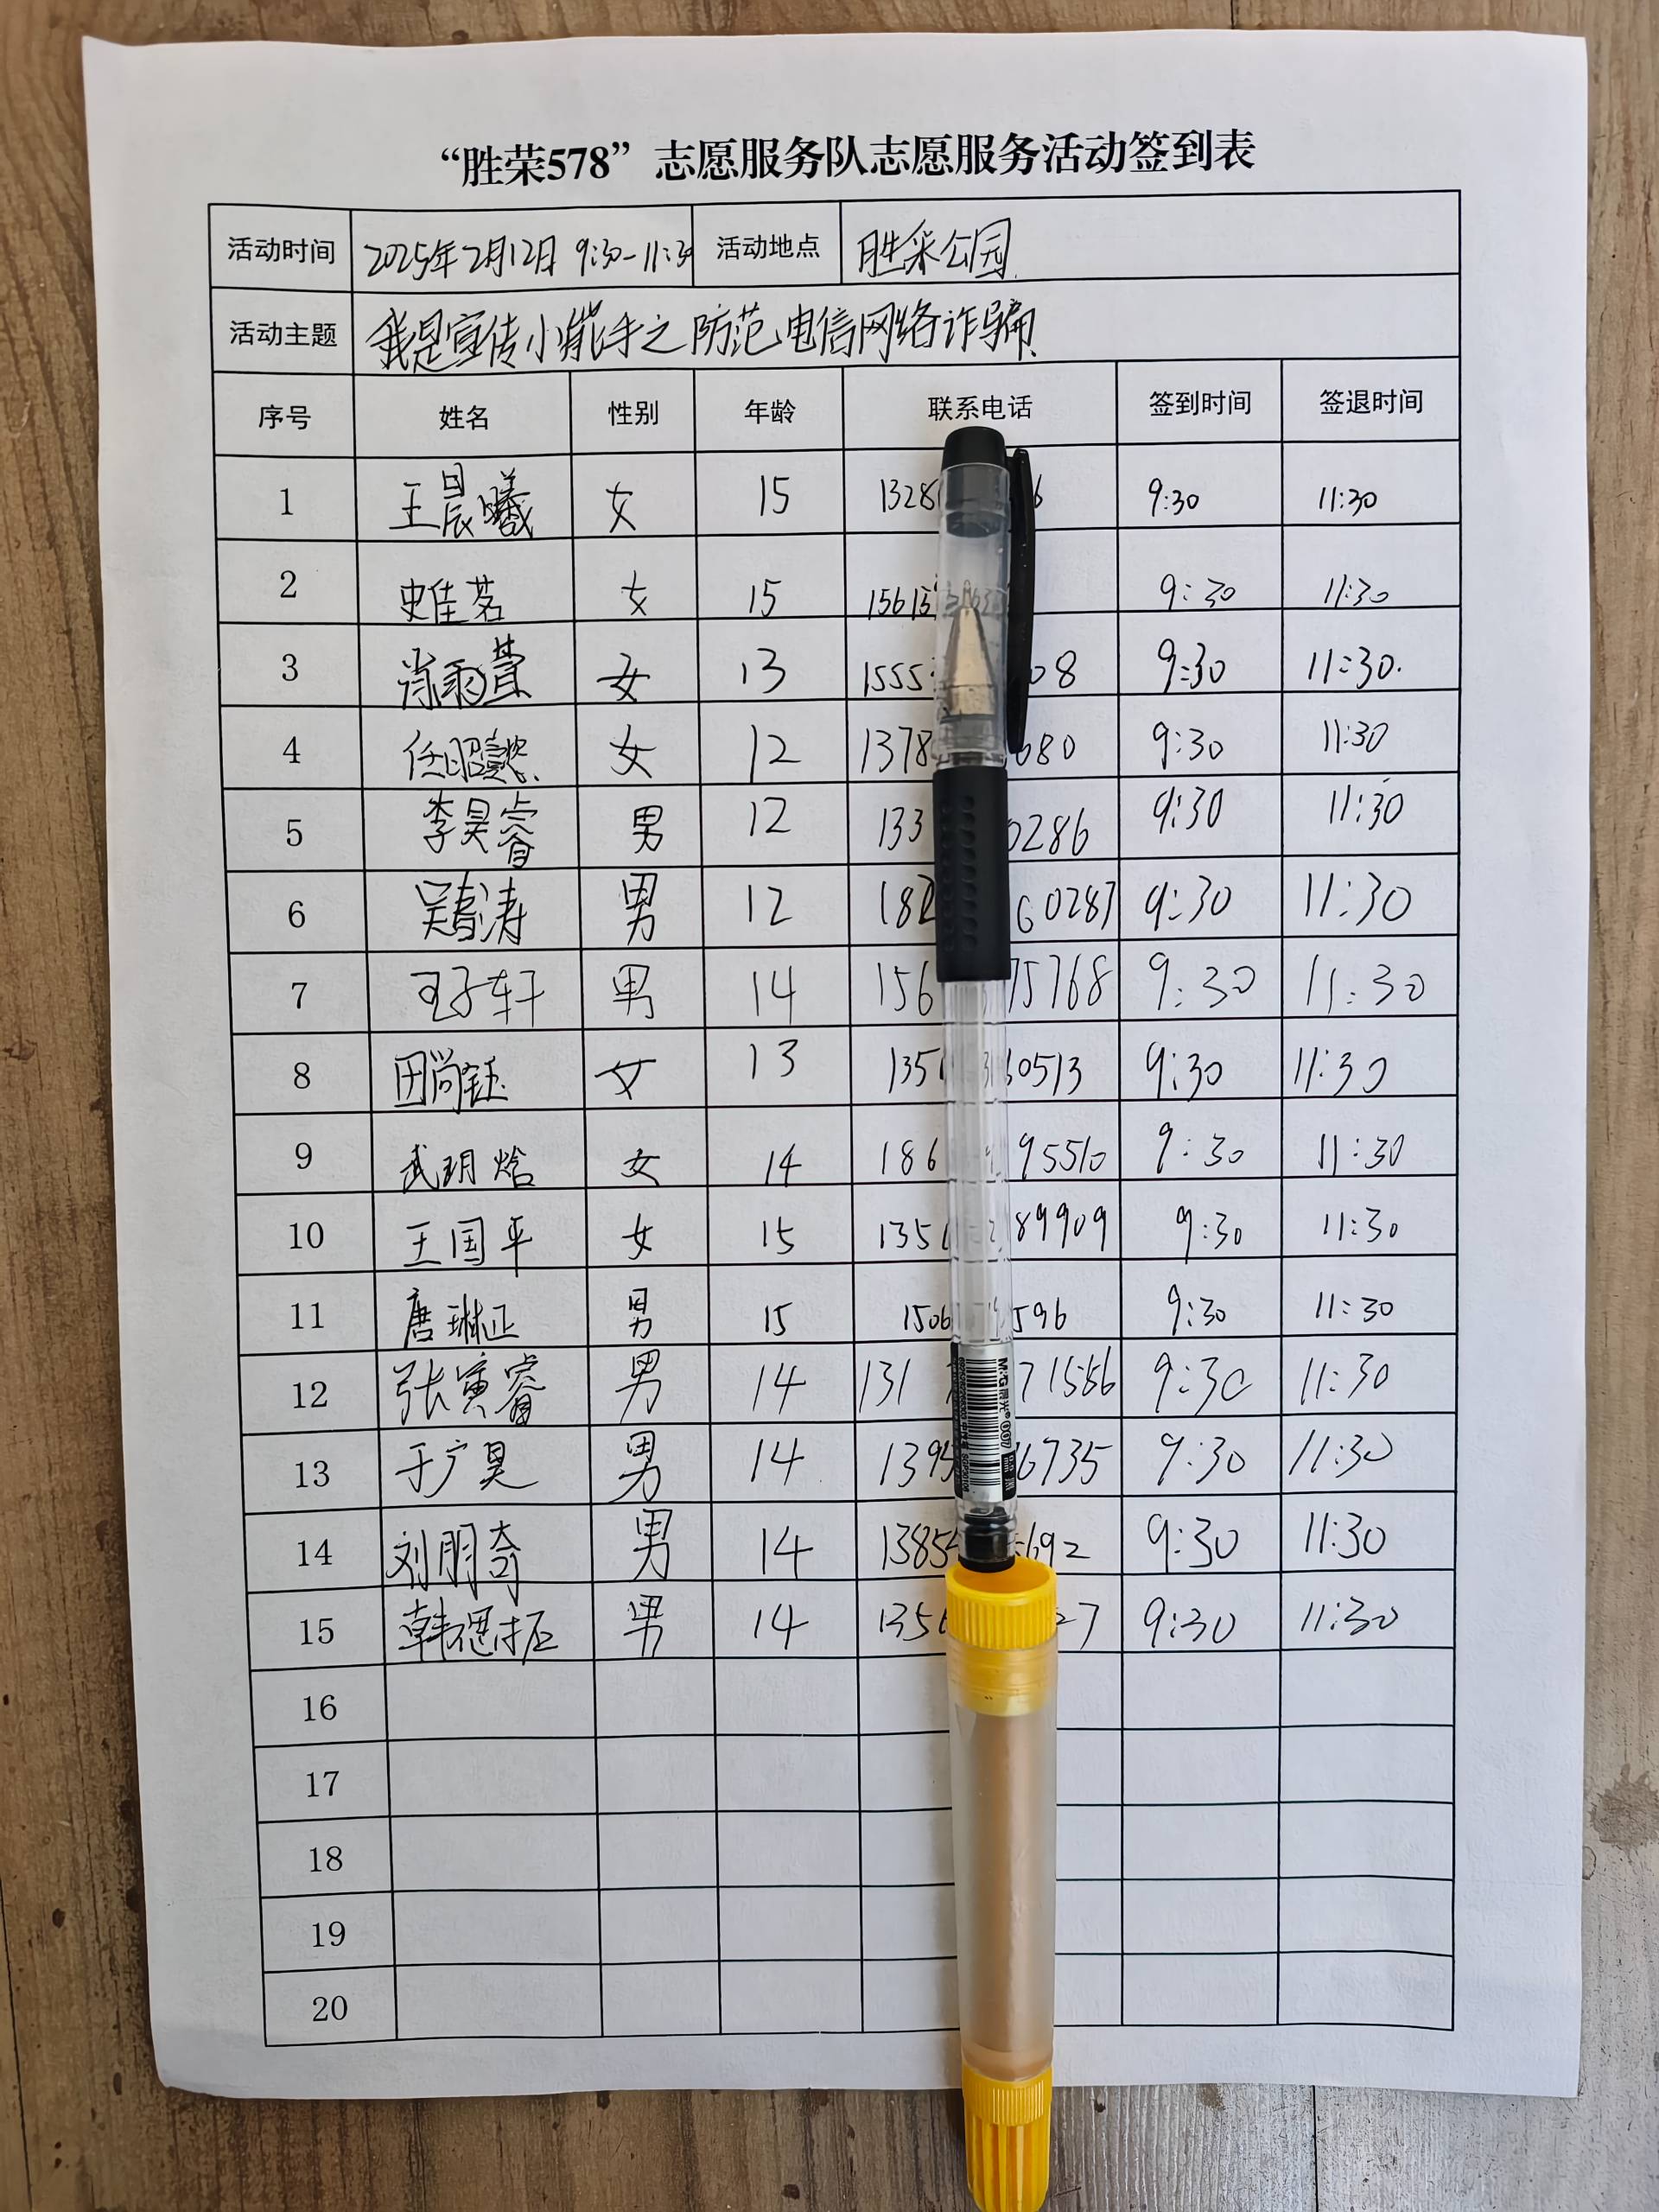 “胜荣578”志愿服务队志愿服务活动签到表
活动时间 2025年2月12日 9:30-11:30 活动地点 胜采公园
活动主题 我是宣传小能手之防范电信网络诈骗
序号 姓名 性别 年龄 联系电话 签到时间 签退时间
1 王晨曦 女 15 1328 6 9:30 11:30
2 史佳茗 女 15 15615 9:30 11:30
3 肖雨萱 女 13 1555 08 9:30 11:30.
4 任昭懿 女 12 1378 680 9:30 11:30
5 李昊睿 男 12 133 0286 9:30 11:30
6 吴春涛 男 12 182 60287 9:30 11:30
7 王子轩 男 14 156 75768 9:30 11:30
8 田尚钰 女 13 135 60513 9:30 11:30
9 武玥焓 女 14 186 95510 9:30 11:30
10 王国平 女 15 135 89909 9:30 11:30
11 唐琳正 男 15 1506 596 9:30 11:30
12 张寅睿 男 14 131 71556 9:30 11:30
13 于广昊 男 14 1395 6735 9:30 11:30
14 刘朋奇 男 14 1385 692 9:30 11:30
15 韩 男 14 1356 27 9:30 11:30
16
17
18
19
20
M&G 晨光 007